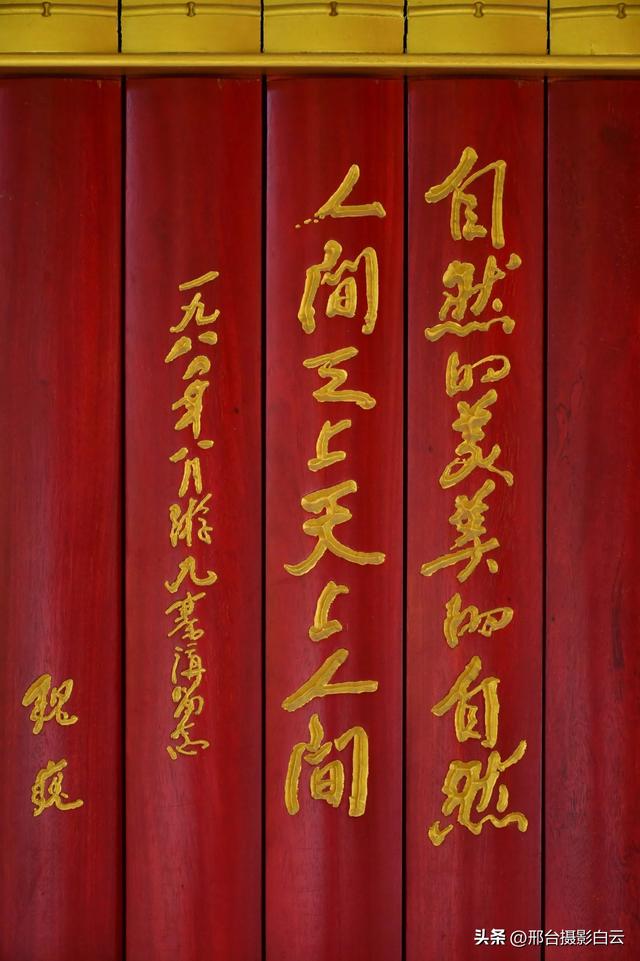 自然的美美的自然
人间天上天上人间
一九八八年八月游九寨沟留念
魏巍
头条 @邢台摄影白云